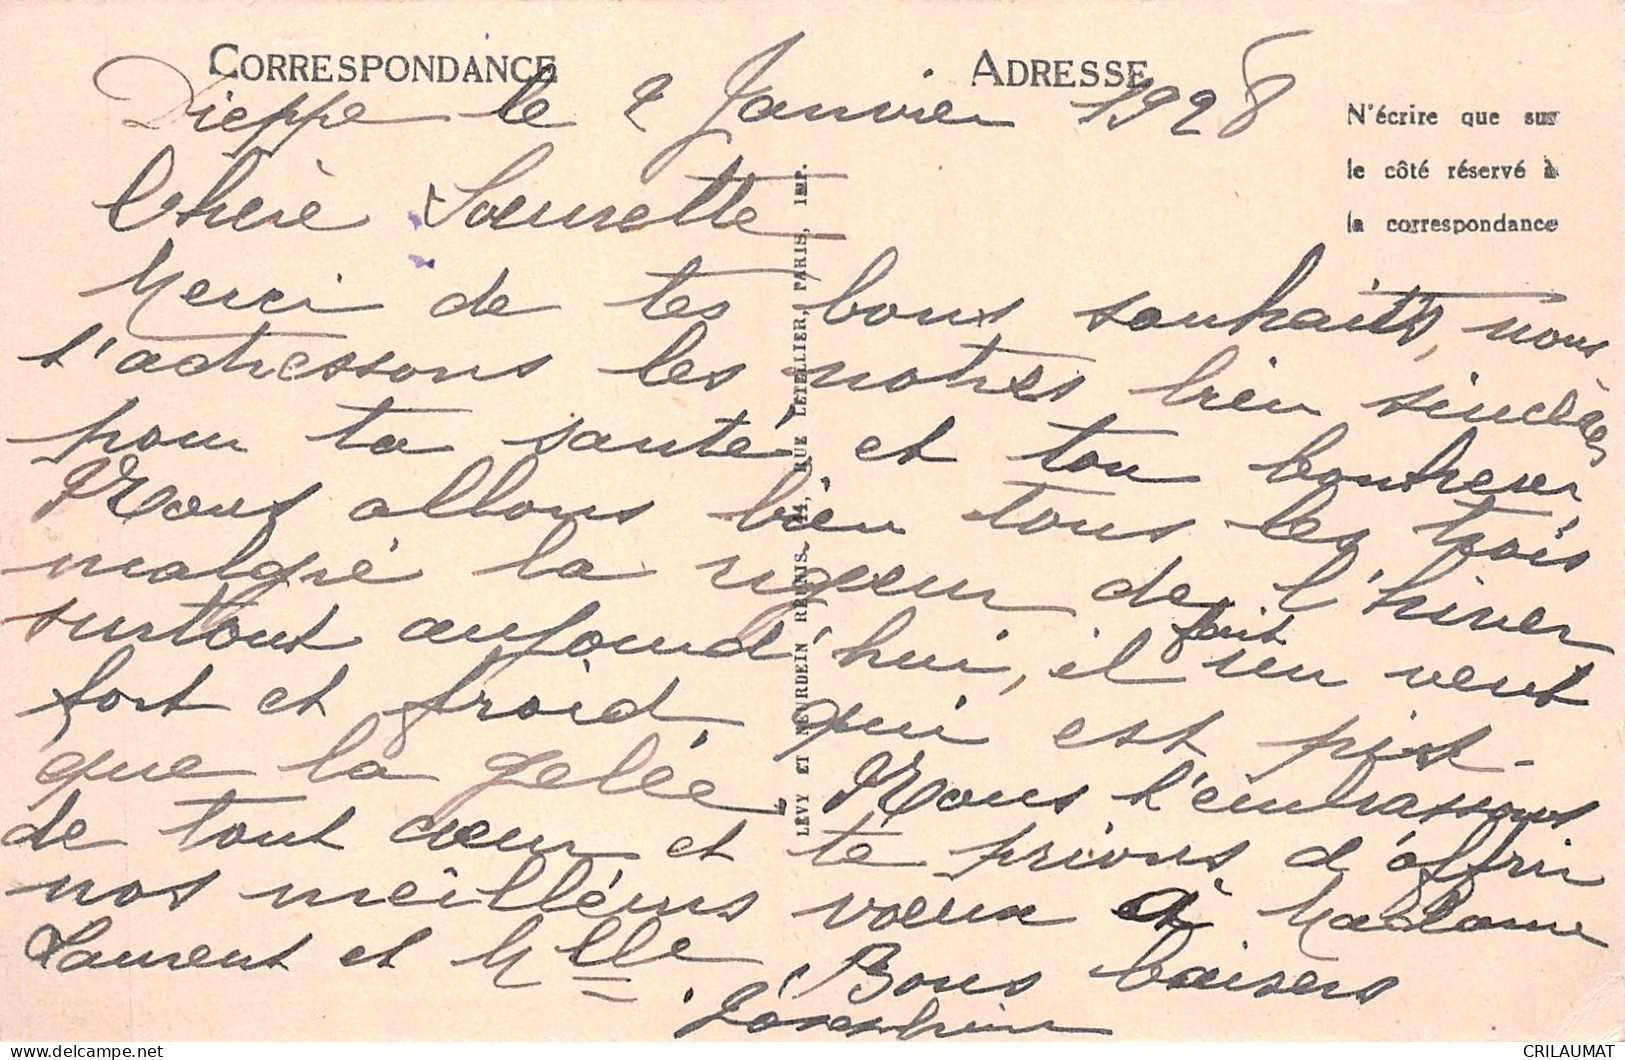 CORRESPONDANCE
ADRESSE
N'écrire que sur
le côté réservé à
la correspondance
Dieppe le 2 Janvier 1928
Chère Soeurette
Merci de tes bons souhaits, nous
t'adressons les notres bien sincères
pour ta santé et ton bonheur
Nous allons bien tous les trois
malgré la rigeur de l'hiver
surtout aujourd'hui, il fait un vent
fort et froid qui est pist
que la gelée. Nous t'embrassons
de tout coeur et te prions d'offrir
nos meilleurs voeux à Madame
Laurent et Mlle
Bons baisers
Joséphine
LEVY ET NEURDEIN REUNIS. 44, RUE LETELLIER, PARIS, IMP.
CRILAUMAT